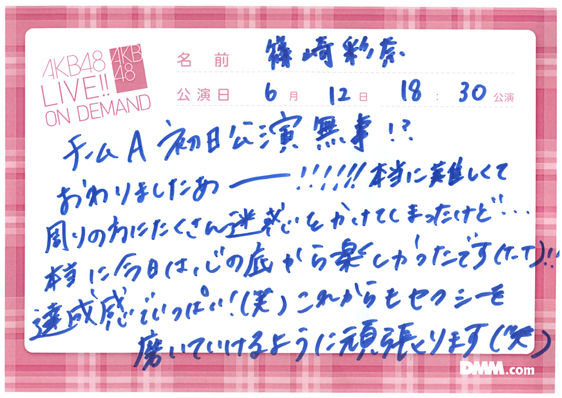 AKB48
LIVE!!
ON DEMAND
AKB
48
名前 篠崎彩奈
公演日 6月 12日 18:30公演
チームA 初日公演 無事!?
おわりましたあー!!!!!! 本当に難しくて
周りの方にたくさん迷惑をかけてしまったけど...
本当に今日は、心の底から楽しかったです(T-T)!!
達成感でいっぱい!(笑)これからもセクシーを
磨いていけるように頑張とります(笑)
DMM.com